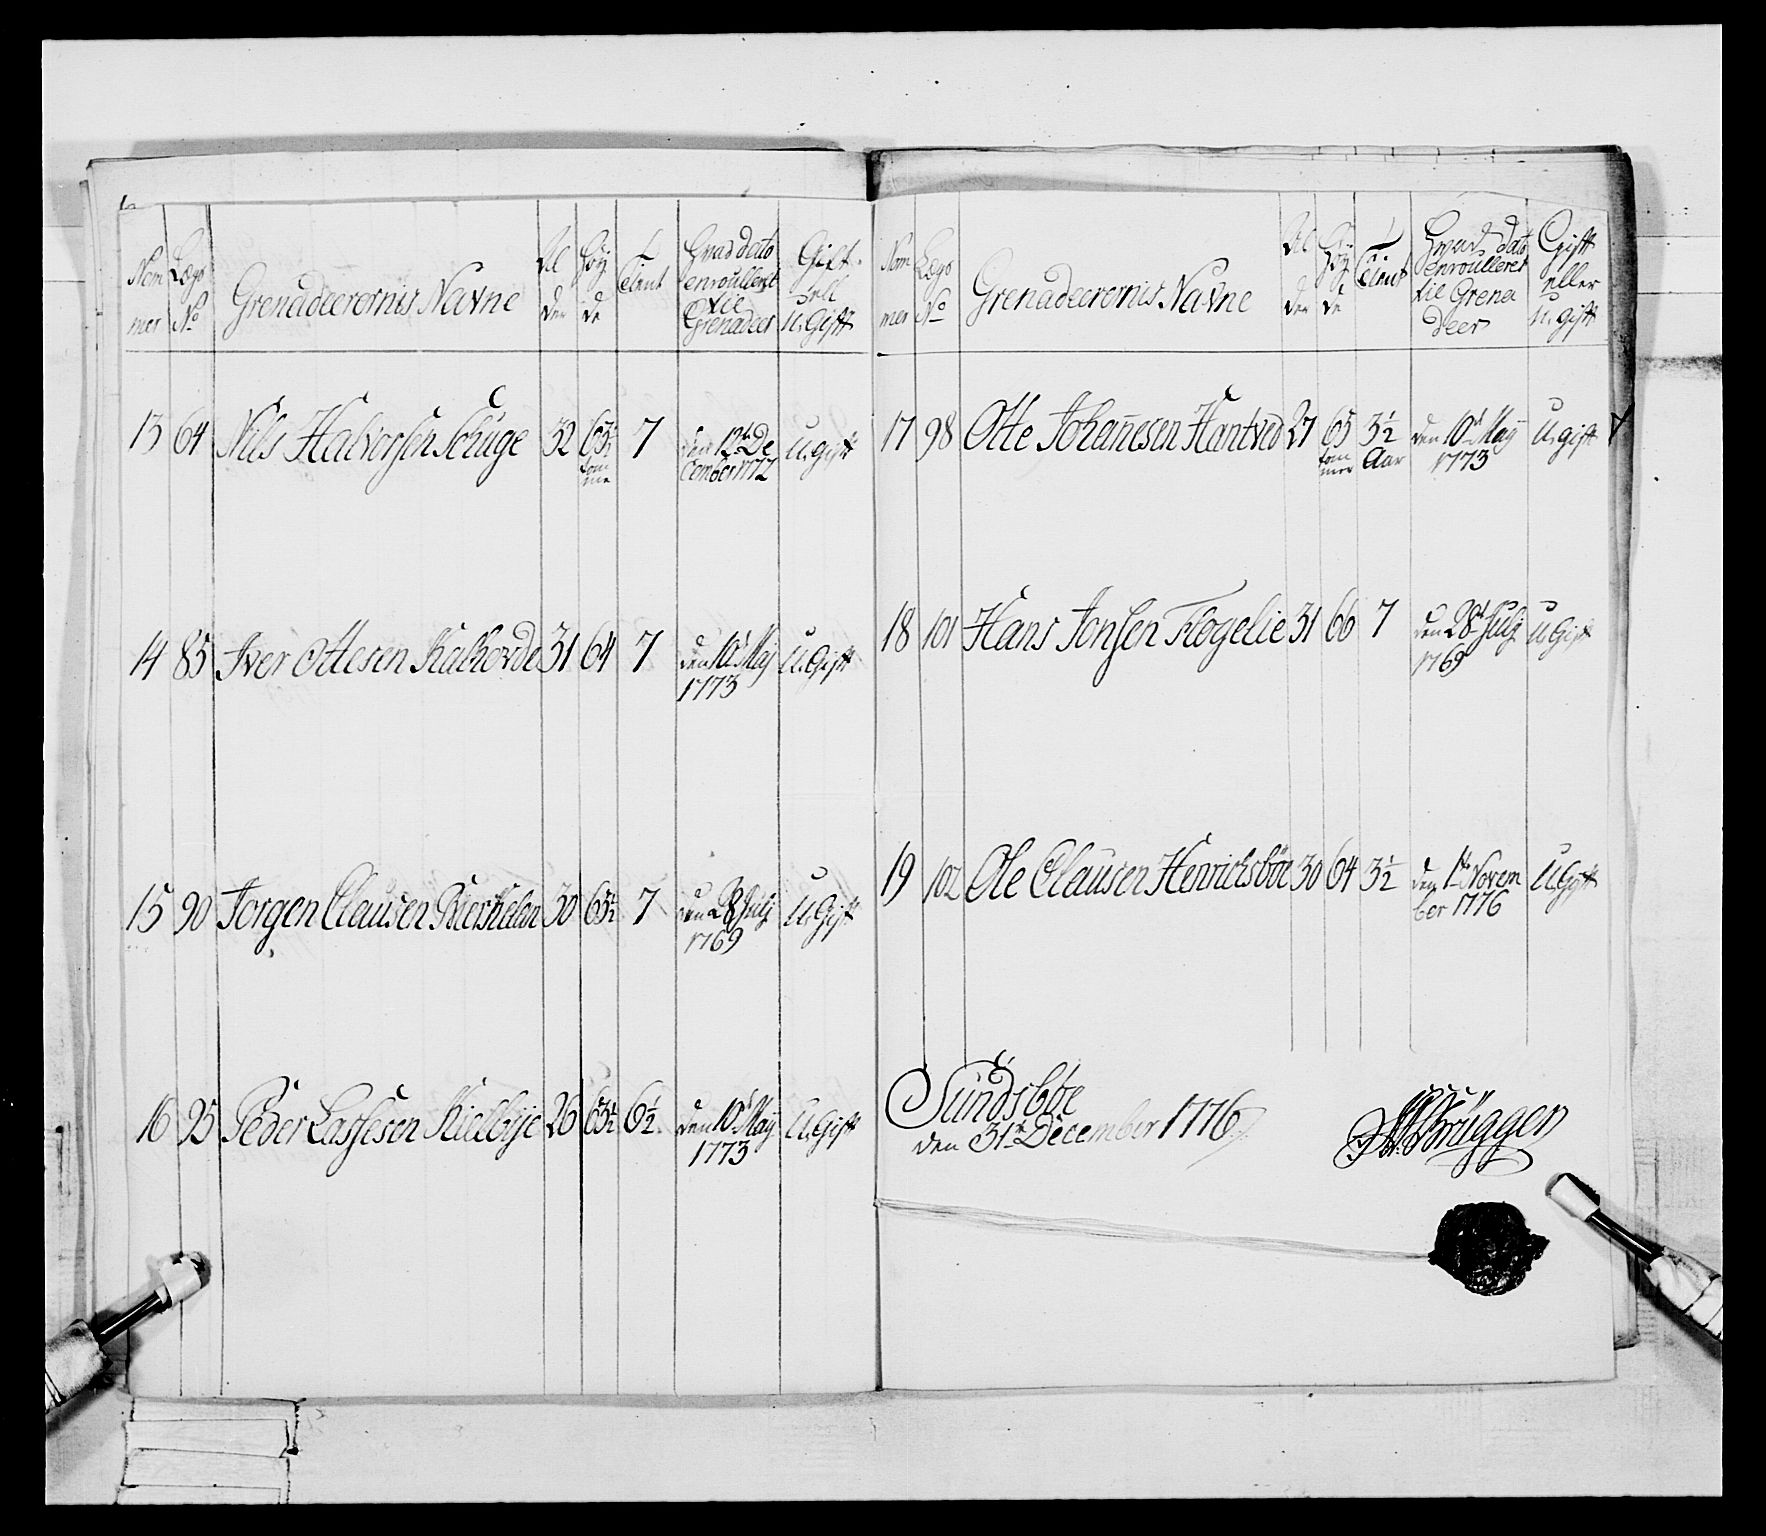 Nom mer
Lægs No
Grenadeerernis Navne
Al der
Høy de
Tient
Hvad dato enroulleret til Grenadeer
Gift eller U. Gift
13 64 Nils Halvorsen 32 63½ tom me 7 den 12te De cember 1772 U. Gift
14 85 Iver Ottesen Kalhovde 31 64 7 den 10t Maÿ 1773 U. Gift
15 90 Jorgen Clausen 30 63½ 7 den 28 Julÿ 1769 U. Gift
16 95 Peder Lassesen 26 63½ 6½ den 10t Maÿ 1773 U. Gift
Nom mer
Lægs No
Grenadeerernis Navne
Al der
Høy de
Tient
Hvad dato enroulleret til Grena deer
Gift eller U. gift
17 98 Otte Johannesen Hantved 27 65 tom mer 3½ Aar den 10t Maÿ 1773 U. gift
18 101 Hans Jonsen Flogelie 31 66 7 den 28t Julÿ 1769 U. Gift
19 102 Ole Clausen Henrichsbøe 30 64 3½ den 1te Novem ber 1776 U. Gift
Sundsbøe
den 31te December 1776
Brüggen